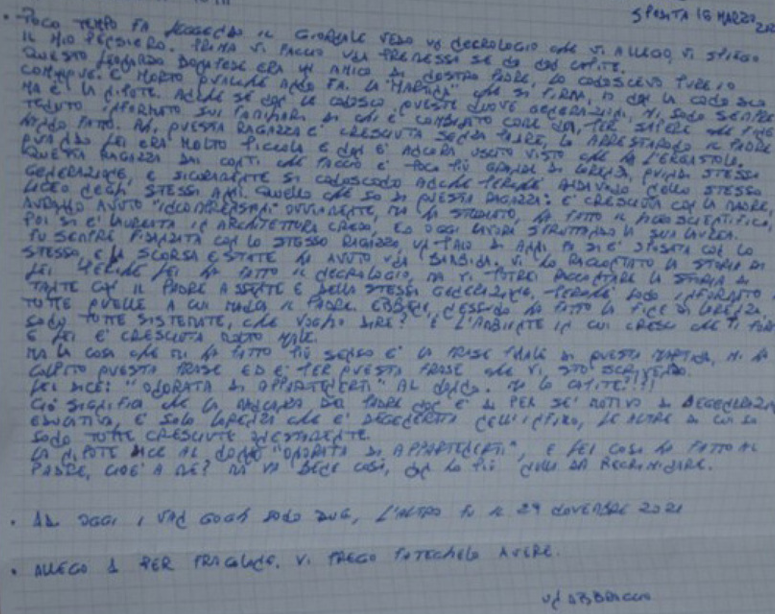 SPOSTA 16 MARZO,
• POCO TEMPO FA LEGGENDO IL GIORNALE VEDO UN NECROLOGIO CHE VI ALLEGO, VI SPIEGO
IL MIO PENSIERO. PRIMA VI FACCIO UNA PREMESSA SE NO NON CAPITE.
QUESTO LEONARDO BONAFEDE ERA UN AMICO DI NOSTRO PADRE, LO CONOSCEVO PURE IO
COMUNQUE. È MORTO QUALCHE ANNO FA. LA "MARTINA" CHE SI FIRMA, IO NON LA CONOSCO
MA È LA NIPOTE. ANCHE SE NON LE CONOSCO, QUESTE NUOVE GENERAZIONI, MI SONO SEMPRE
TENUTO INFORMATO SUI FAMILIARI DI CHI È COMBINATO COME NOI, PER SAPERE CHE FINE
HANNO FATTO. QUESTA RAGAZZA È CRESCIUTA SENZA PADRE, LO ARRESTARONO IL PADRE
QUANDO LEI ERA MOLTO PICCOLA E NON È ANCORA USCITO VISTO CHE HA L'ERGASTOLO.
QUESTA RAGAZZA DAI CONTI CHE FACCIO È POCO PIÙ GRANDE DI LORENZA, QUINDI STESSA
GENERAZIONE, E SICURAMENTE SI CONOSCONO ANCHE PERCHÉ ANDAVANO NELLO STESSO
LICEO NEGLI STESSI ANNI. QUELLO CHE SO DI QUESTA RAGAZZA: È CRESCIUTA CON LA MADRE,
AVRANNO AVUTO "INCOMPRENSIONI" OVVIAMENTE, MA HA STUDIATO, HA FATTO IL LICEO SCIENTIFICO,
POI SI È LAUREATA IN ARCHITETTURA CREDO, ED OGGI LAVORA SFRUTTANDO LA SUA LAUREA.
FU SEMPRE FIDANZATA CON LO STESSO RAGAZZO, UN PAIO DI ANNI FA SI È SPOSATA CON LO
STESSO, E LA SCORSA ESTATE HA AVUTO UNA BAMBINA. VI HO RACCONTATO LA STORIA DI
LEI PERCHÉ LEI HA FATTO IL NECROLOGIO, MA VI POTREI RACCONTARE LA STORIA DI
TANTE CON IL PADRE ASSENTE E DELLA STESSA GENERAZIONE, PERCHÉ SONO INFORMATO
TUTTE QUELLE A CUI MANCA IL PADRE. EBBENE, NESSUNO HA FATTO LA FINE DI LORENZA.
SONO TUTTE SISTEMATE, CHE VOGLIO DIRE? È L'AMBIENTE IN CUI CRESCI CHE TI FORMA
E LEI È CRESCIUTA MOLTO MALE.
MA LA COSA CHE MI HA FATTO PIÙ SENSO È LA FRASE FINALE DI QUESTA MARTINA, MI HA
COLPITO QUESTA FRASE ED È PER QUESTA FRASE CHE VI STO SCRIVENDO.
LEI DICE: "ONORATA DI APPARTENERTI" AL NONNO. MA LO CAPITE?!!!
CIÒ SIGNIFICA CHE LA MANCANZA DEL PADRE NON È DI PER SÉ MOTIVO DI DEGENERAZIONE
EDUCATIVA, È SOLO LORENZA CHE È DEGENERATA NELL'INFIMO, LE ALTRE DI CUI SO
SONO TUTTE CRESCIUTE ONESTAMENTE.
LA NIPOTE DICE AL NONNO "ONORATA DI APPARTENERTI", E LEI COSA HA FATTO AL
PADRE, CIOÈ A ME? MA VA BENE COSÌ, NON HO PIÙ NULLA DA RECRIMINARE.
• AD OGGI I VAN GOGH SONO DUE, L'ALTRO FU IL 29 NOVEMBRE 2021
• ALLEGO 1 PER FRAGOLONE. VI PREGO FATECHELO AVERE.
UN ABBRACCIO